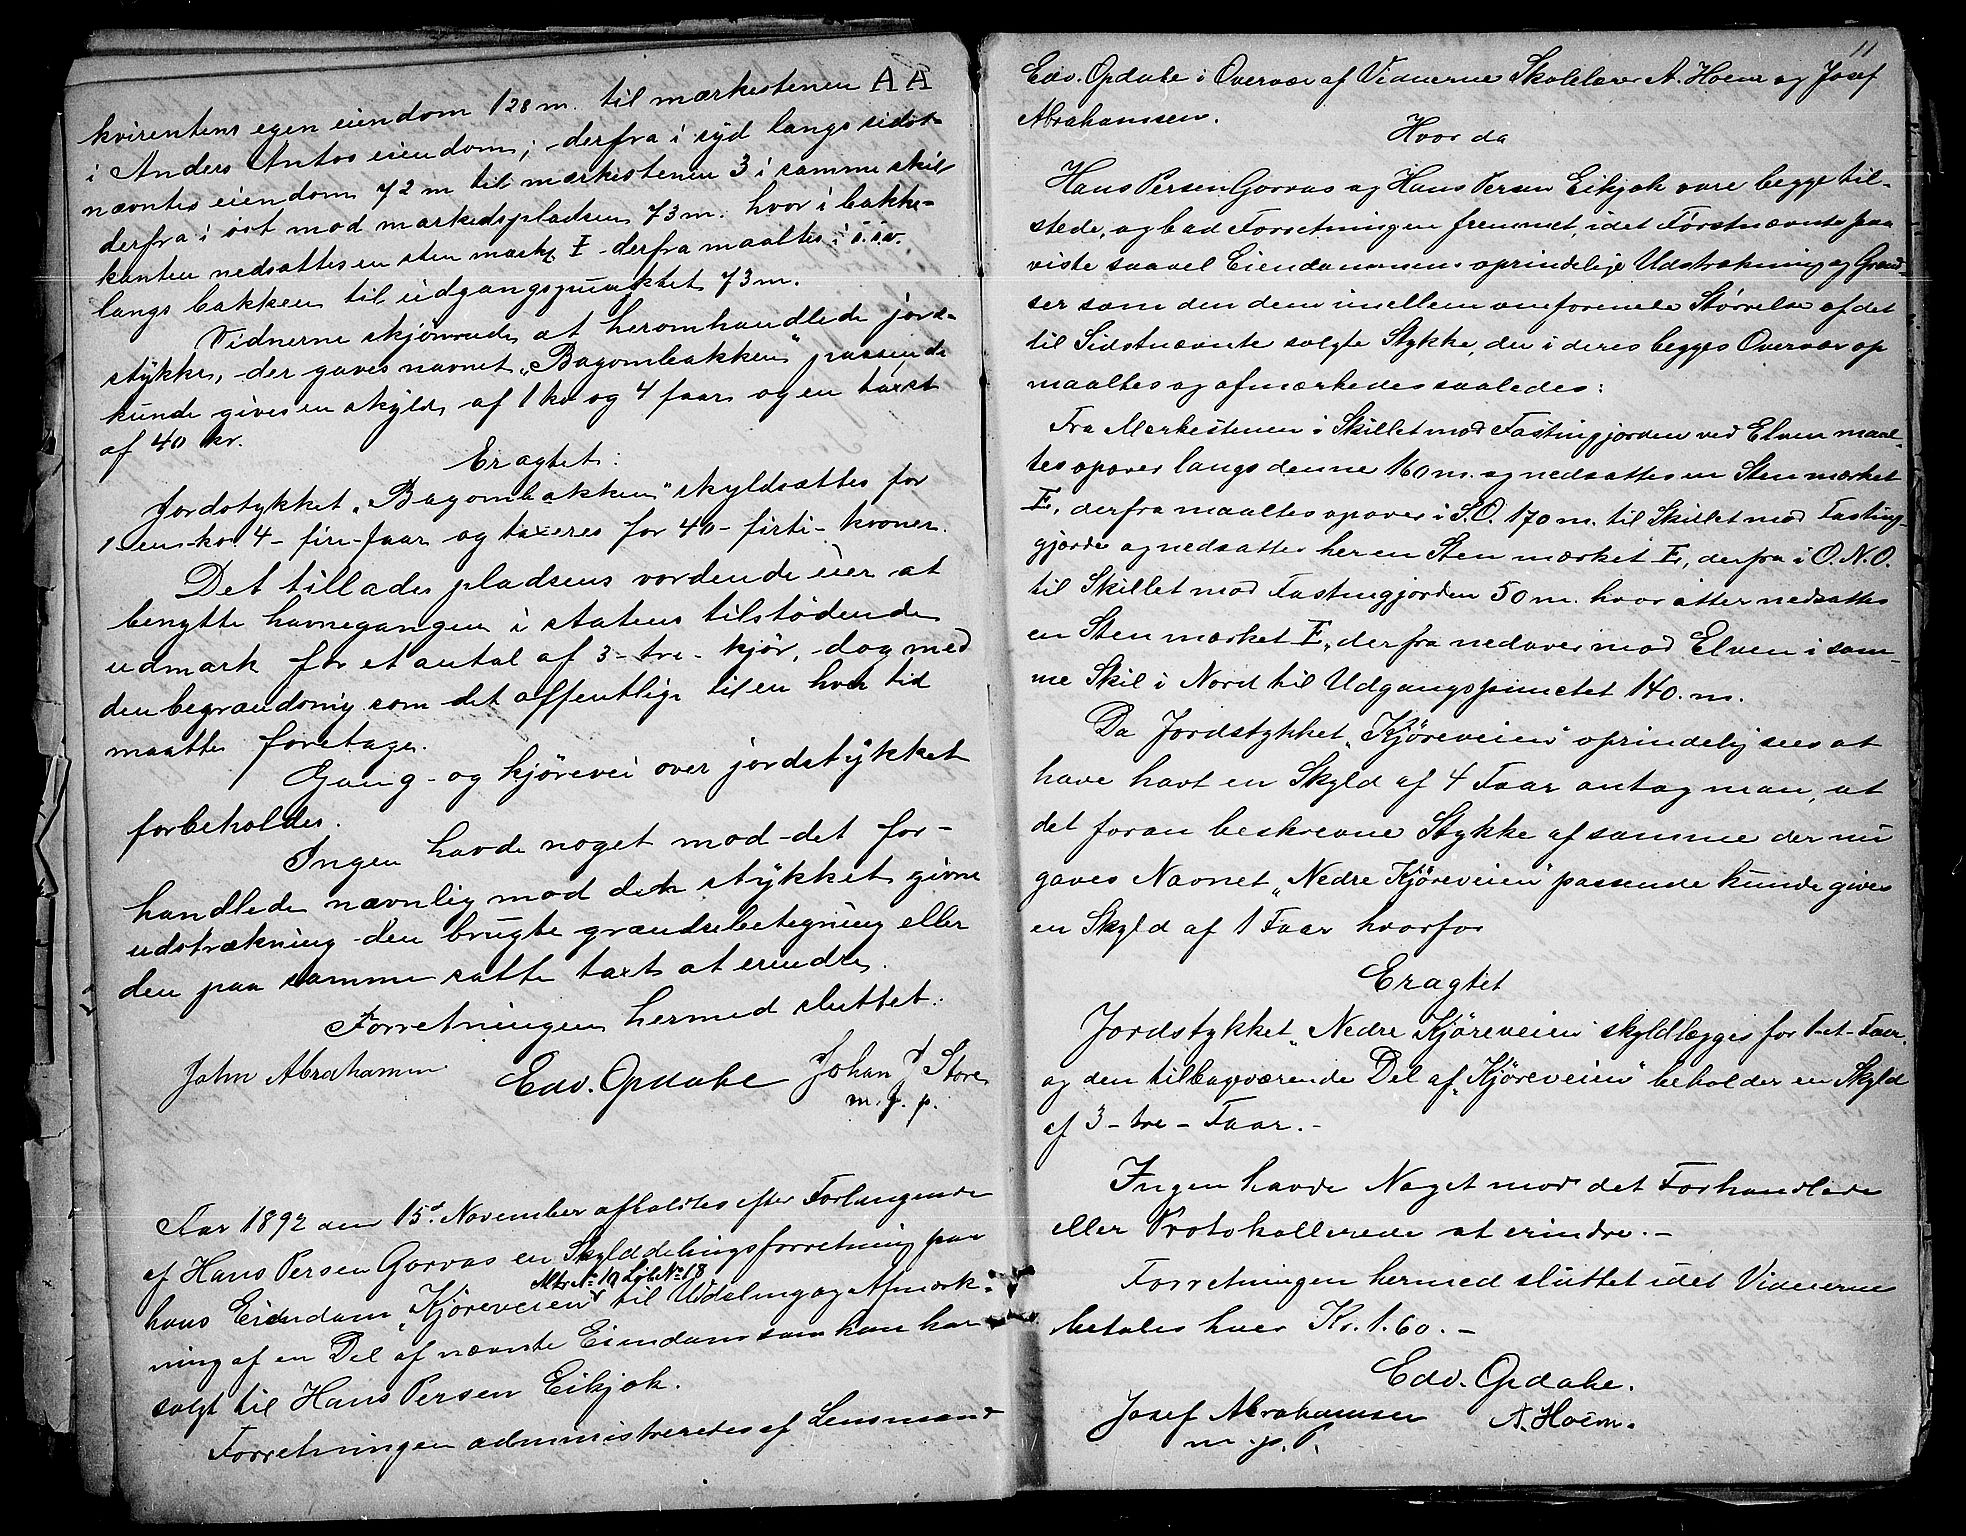 kvirentens egen eiendom 128 m. til mærkestenen A A
i Anders Antos eiendom; derfra i syd langs sidst-
nævntes eiendom 72 m til mærkestenen 3 i samme skil
derfra i øst mod markedspladsen 73 m. hvor i bakke-
kanten nedsattes en sten mærkt I derfra maaltes i s.s.v.
langs bakken til udgangspunktet 73 m.
Vidnerne skjønnede at heromhandlede jord-
stykke, der gaves navnet „Bagombakken" passende
kunde gives en skyld af 1 ko og 4 faar og en taxt
af 40 kr.
Eragtet:
Jordstykket „Bagombakken" skyldsættes for
1 - en - ko 4 - fire - faar og taxeres for 40 - firti - kroner.
Det tillades pladsens vordende eier at
benytte havnegangen i statens tilstødende
udmark for et antal af 3 - tre - kjør, dog med
den begrændsning som det offentlige til en hver tid
maatte foretage.
Gang- og kjørevei over jordstykket
forbeholdes.
Ingen havde noget mod det for-
handlede nævnlig mod den stykket givne
udstrækning den brugte grændsebetegning eller
den paa samme satte taxt at erindre.
Forretningen hermed sluttet.
John Abrahamsen Edv. Opdahe Johan J Store
m. f. p.
Aar 1892 den 15de November afholdtes efter Forlangende
af Hans Persen Gorvas en Skylddelingsforretning paa
Mtr. No 19 Løb No 18
hans Eiendom „Kjøreveien" til Udeling og Afmærk-
ning af en Del af nævnte Eiendom som han har
solgt til Hans Persen Eikjok.
Forretningen administreredes af Lensmand
11
Edv. Opdahe i Overvær af Vidnerne Skolelærer A. Hoem og Josef
Abrahamsen.
Hvor da
Hans Persen Gorvas og Hans Persen Eikjok vare begge til-
stede, og bad Forretningen fremmet, idet Førstnævnte paa
viste saavel Eiendommens oprindelige Udstrækning og Grænd-
ser som den dem imellem omforenede Størrelse af det
til Sidstnævnte solgte Stykke, der i deres begges Overvær op
maaltes og afmærkedes saaledes:
Fra Merkestenen i Skillet mod Fastingjorden ved Elven maal-
tes opover langs denne 160 m. og nedsattes en Sten mærket
E, derfra maaltes opover i S.O. 170 m. til Skillet mod Fasting-
gjorde og nedsattes her en Sten mærket E, derfra i O.N.O.
til Skillet mod Fastingjorden 50 m. hvor atter nedsattes
en Sten mærket E, derfra nedover mod Elven i sam-
me Skil i Nord til Udgangspunctet 140. m.
Da Jordstykket „Kjøreveien" oprindelig sees at
have havt en Skyld af 4 Faar antog man, at
det foran beskrevne Stykke af samme der nu
gaves Navnet „Nedre Kjøreveien" passende kunde gives
en Skyld af 1 Faar hvorfor
Eragtet
Jordstykket „Nedre Kjøreveien" skyldlægges for 1-et-Faar
og den tilbageværende Del af „Kjøreveien" beholder en Skyld
af 3 - tre - Faar. -
Ingen havde Noget mod det Forhandlede
eller Protokollerede at erindre. -
Forretningen hermed sluttet idet Vidnerne
betales hver Kr. 1.60. -
Edv. Opdahe.
Josef Abrahamsen A. Hoem.
m. p. P.